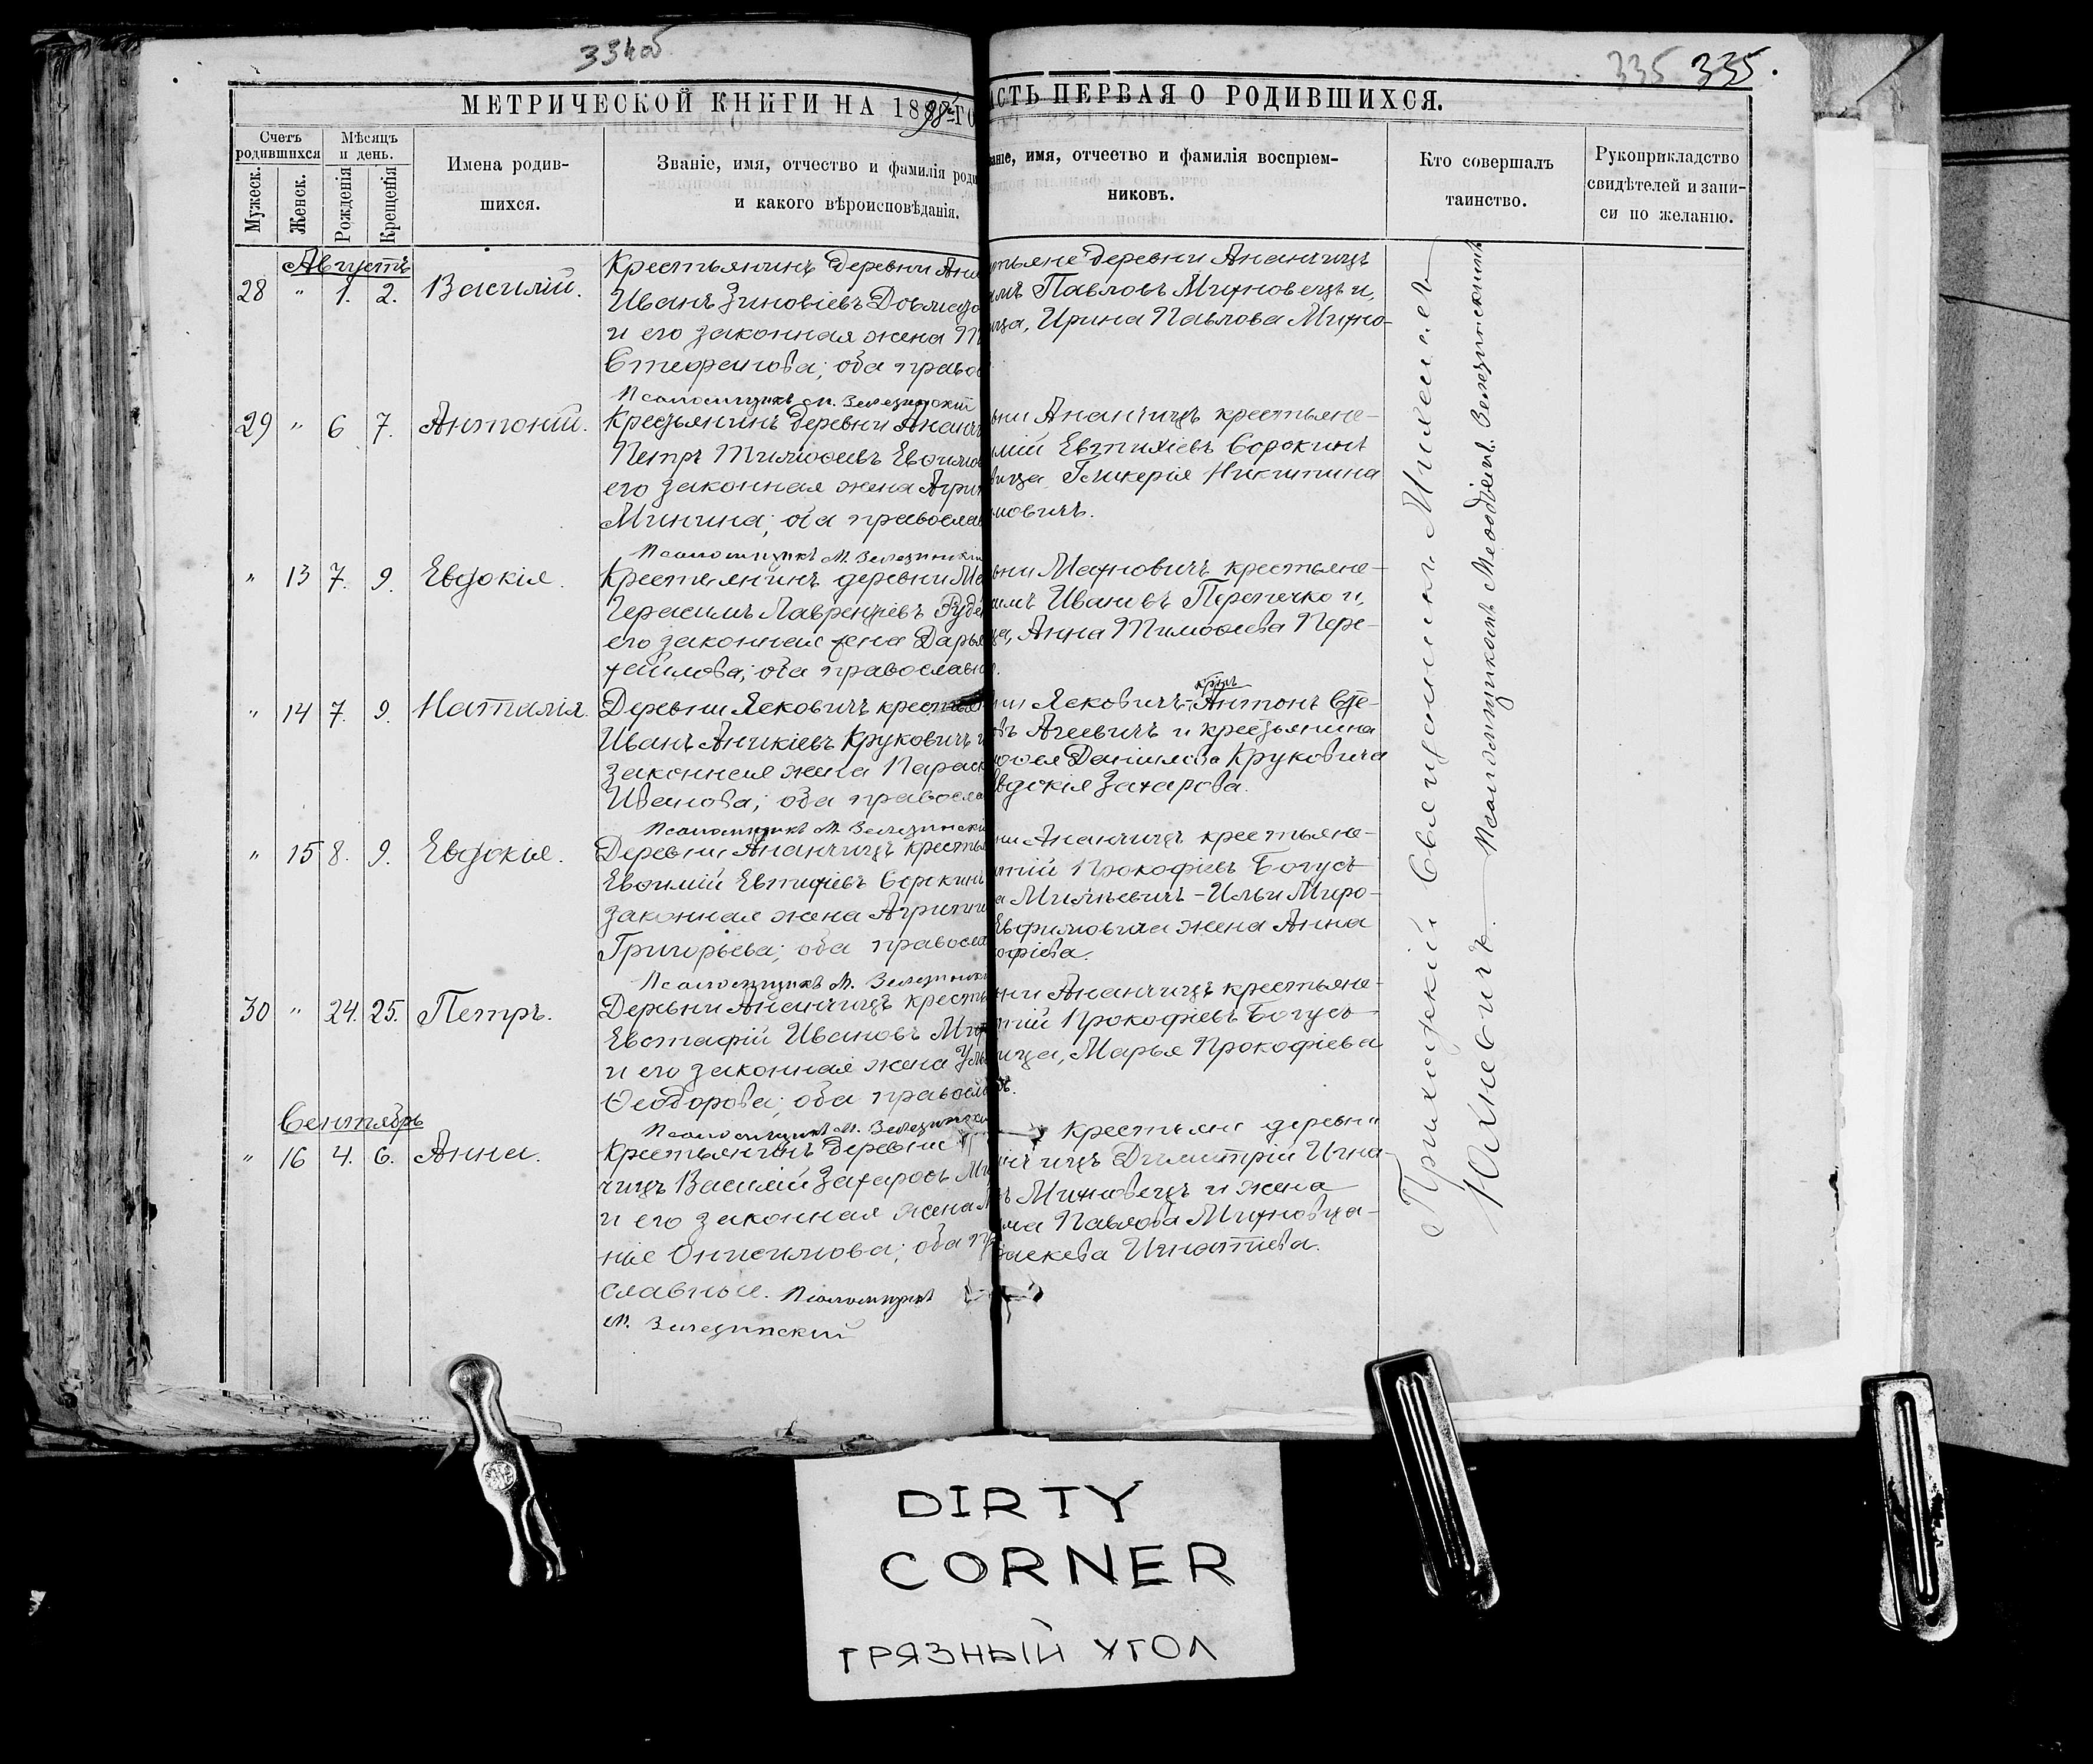 334об
335 335.
МЕТРИЧЕСКОЙ КНИГИ НА 1898 ГО
АСТЬ ПЕРВАЯ О РОДИВШИХСЯ.
Счетъ родившихся
Мѣсяцъ и день.
Мужеск.
Женск.
Рожденія
Крещенія
Имена родив-
шихся.
Званіе, имя, отчество и фамилія роди
и какого вѣроисповѣданія.
аніе, имя, отчество и фамилія воспріем-
никовъ.
Кто совершалъ
таинство.
Рукоприкладство
свидѣтелей и запи-
си по желанію.
Августъ
28 " 1. 2. Василій.
Крестьянинъ деревни Ана
Иванъ Зиновіевъ
и его законная жена
Стефанова; оба право
Псаломщикъ М. Зелезинскій
тьяне деревни Ананчицъ
Павловъ Михновецъ и,
ица, Ирина Павлова Михно-
29 " 6 7. Антоній.
Крестьянинъ деревни Ананч
Петръ Тимофеевъ Евфимов
его законная жена Агрип
Минина; оба православ
Псаломщикъ М. Зелезинскій
вни Ананчицъ крестьяне-
мій Евтихіевъ Сорокинъ
вица Гликерія Никитина
мовичъ.
" 13 7. 9. Евдокія.
Крестьянинъ деревни Ма
Герасимъ Лаврентіевъ Руде
его законная жена Дарья
хаилова; оба православн
вни Махновичъ крестьяне-
имъ Ивановъ Перепечко и,
ца, Анна Тимофеева Пере-
" 14 7. 9. Наталія.
Деревни Яековичъ крестья
Иванъ Аникіевъ Круковичъ и
законная жена Параск
Иванова; оба правосла
Псаломщикъ М. Зелезински
крнъ
ни Яековичъ-Антонъ Сте-
въ Агеевичъ и крестьянина
Даніилова Круковича
вдокія Захарова.
" 15 8. 9. Евдокія.
Деревни Ананчицъ крестья
Евфимій Евтихіевъ Сорокинъ
законная жена Агрипин
Григорьева; оба правосла
Псаломщикъ М. Зелезински
ни Ананчицъ крестьяне-
тій Прокофіевъ Богусъ
Ильи Миро-
Евфимовича жена Анна
офіева.
30 " 24. 25. Петръ.
Деревни Ананчицъ кресть
Евстафій Ивановъ Мих
и его законная жена Уль
Ѳеодорова; оба правосла
Псаломщикъ М. Зелезински
ни Ананчицъ крестьяне-
тій Прокофіевъ Богусъ
ица, Марья Прокофіева
Сентябрь
" 16 4. 6. Анна.
Крестьянинъ деревни
чицъ Василій Захаровъ Ми
и его законная жена
нія Онисимова; оба пр
славные. Псаломщикъ
М. Зелезинскій
Крестьяне деревни
нчицъ Димитрій Игна-
ъ Михновецъ и жена
ма Павлова Михновца-
раскева Игнатіева.
Приходскій Священникъ Михаилъ
Юхневичъ.
Псаломщикъ Меѳодій Зелезинскій
DIRTY
CORNER
ГРЯЗНЫЙ УГОЛ